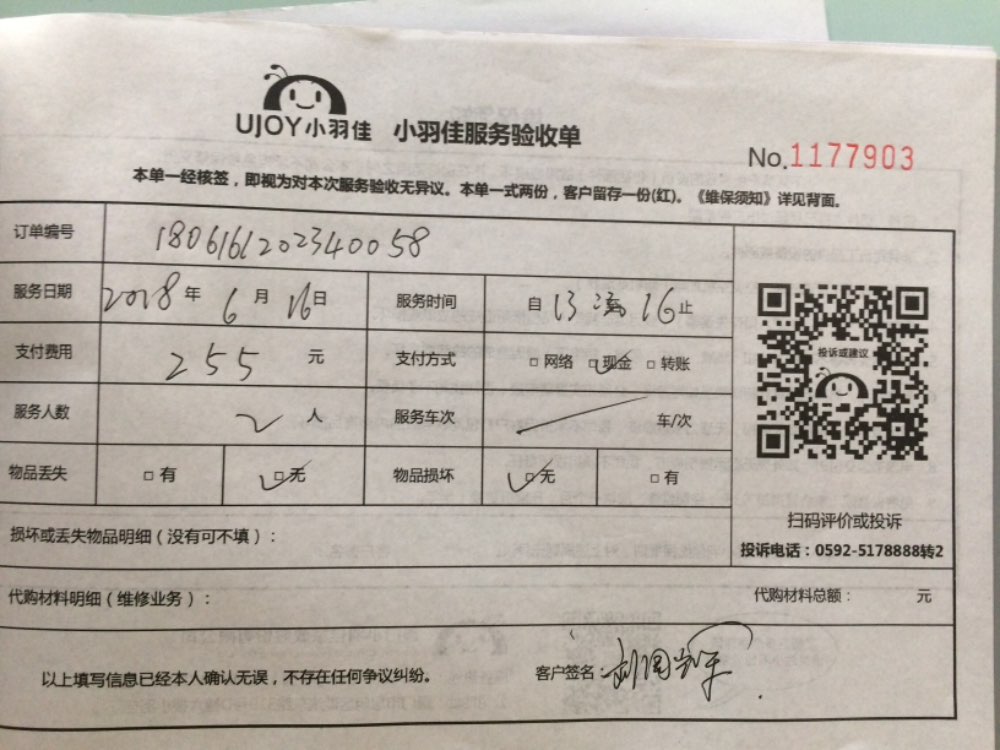 UJOY小羽佳 小羽佳服务验收单
No.1177903
本单一经核签，即视为对本次服务验收无异议。本单一式两份，客户留存一份(红)。《维保须知》详见背面。
订单编号 1806161202340058
服务日期 2018年6月16日 服务时间 自13 16止
支付费用 255元 支付方式 □网络 □现金 □转账
投诉或建议
服务人数 2人 服务车次 车/次
物品丢失 □有 □无 物品损坏 □无 □有
扫码评价或投诉
损坏或丢失物品明细（没有可不填）：
投诉电话：0592-5178888转2
代购材料明细（维修业务）： 代购材料总额： 元
以上填写信息已经本人确认无误，不存在任何争议纠纷。 客户签名：